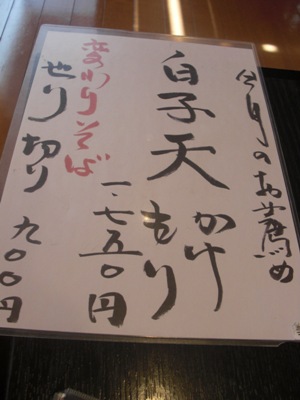 今月のお薦め
白子天
かけ
もり
一、七五〇円
変わりそば
せり切り
九〇〇円